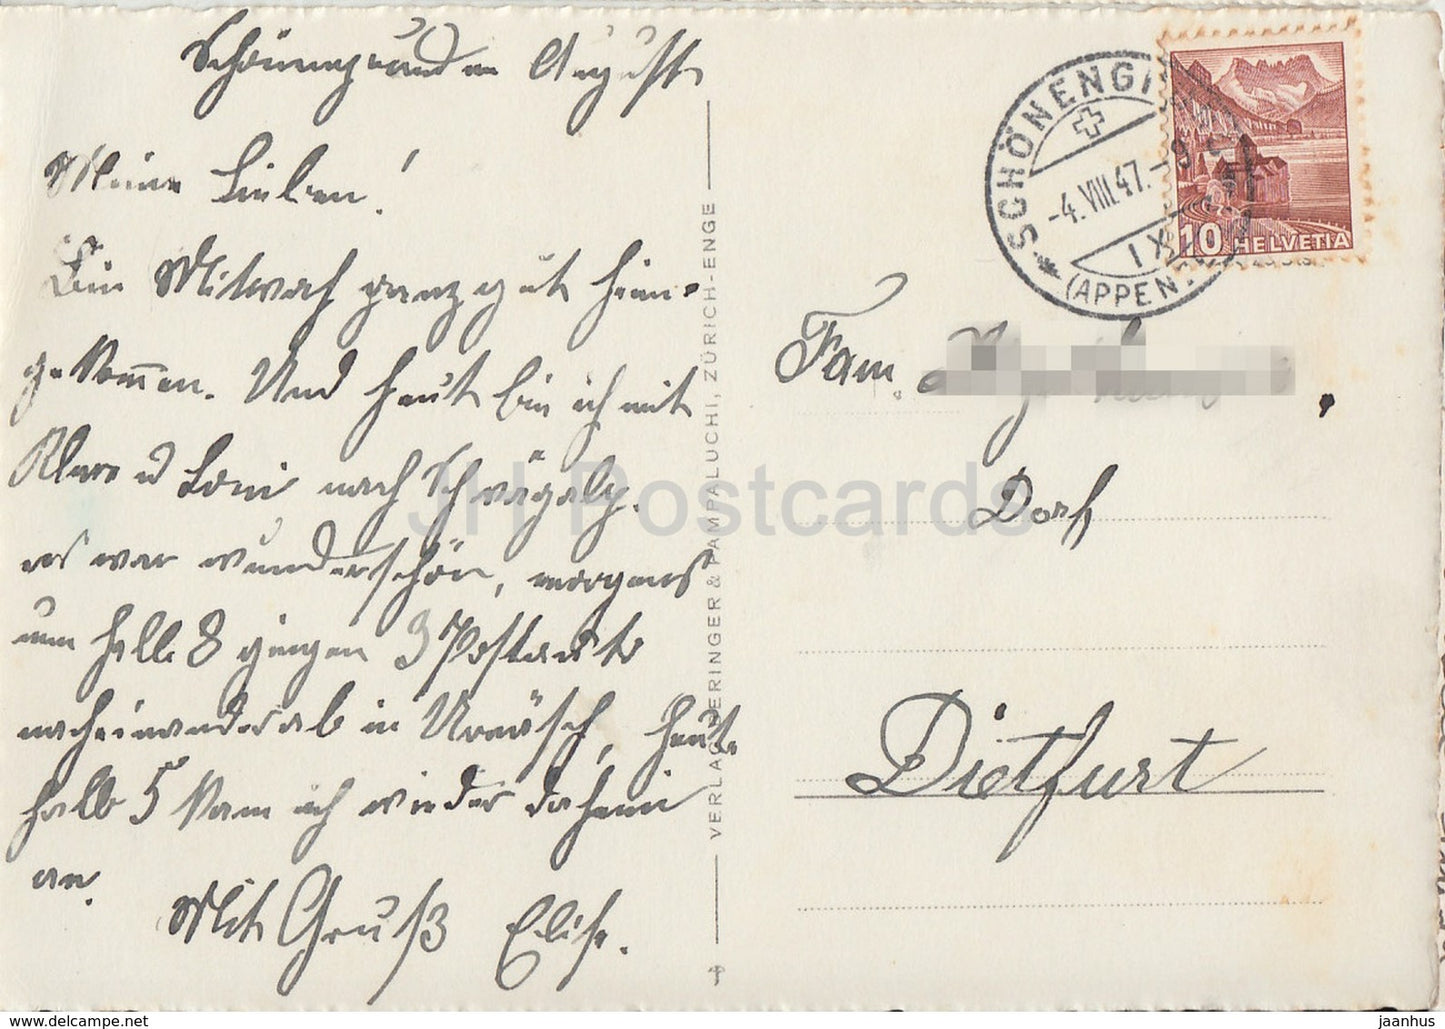 Schönengrund im August
Meine Lieben!
Bin Mitwoch ganz gut heim-
gekommen. Und heute bin ich mit
Klara u Loni nach Schwägalp.
es war wunderschön, morgens
um halb 8 gingen 3 Postauto
nacheinander ab in Urnäsch, heute
halb 5 kam ich wieder daheim
an.
Mit Gruß Elise.
VERLAG BERINGER & PAMPALUCHI, ZÜRICH-ENGE
SCHÖNENG
-4.VIII.47.-9
IX
(APPEN.
10 HELVETIA
Fam.
Dorf
Dietfurt
JH Postcards
www.delcampe.net
jaanhus